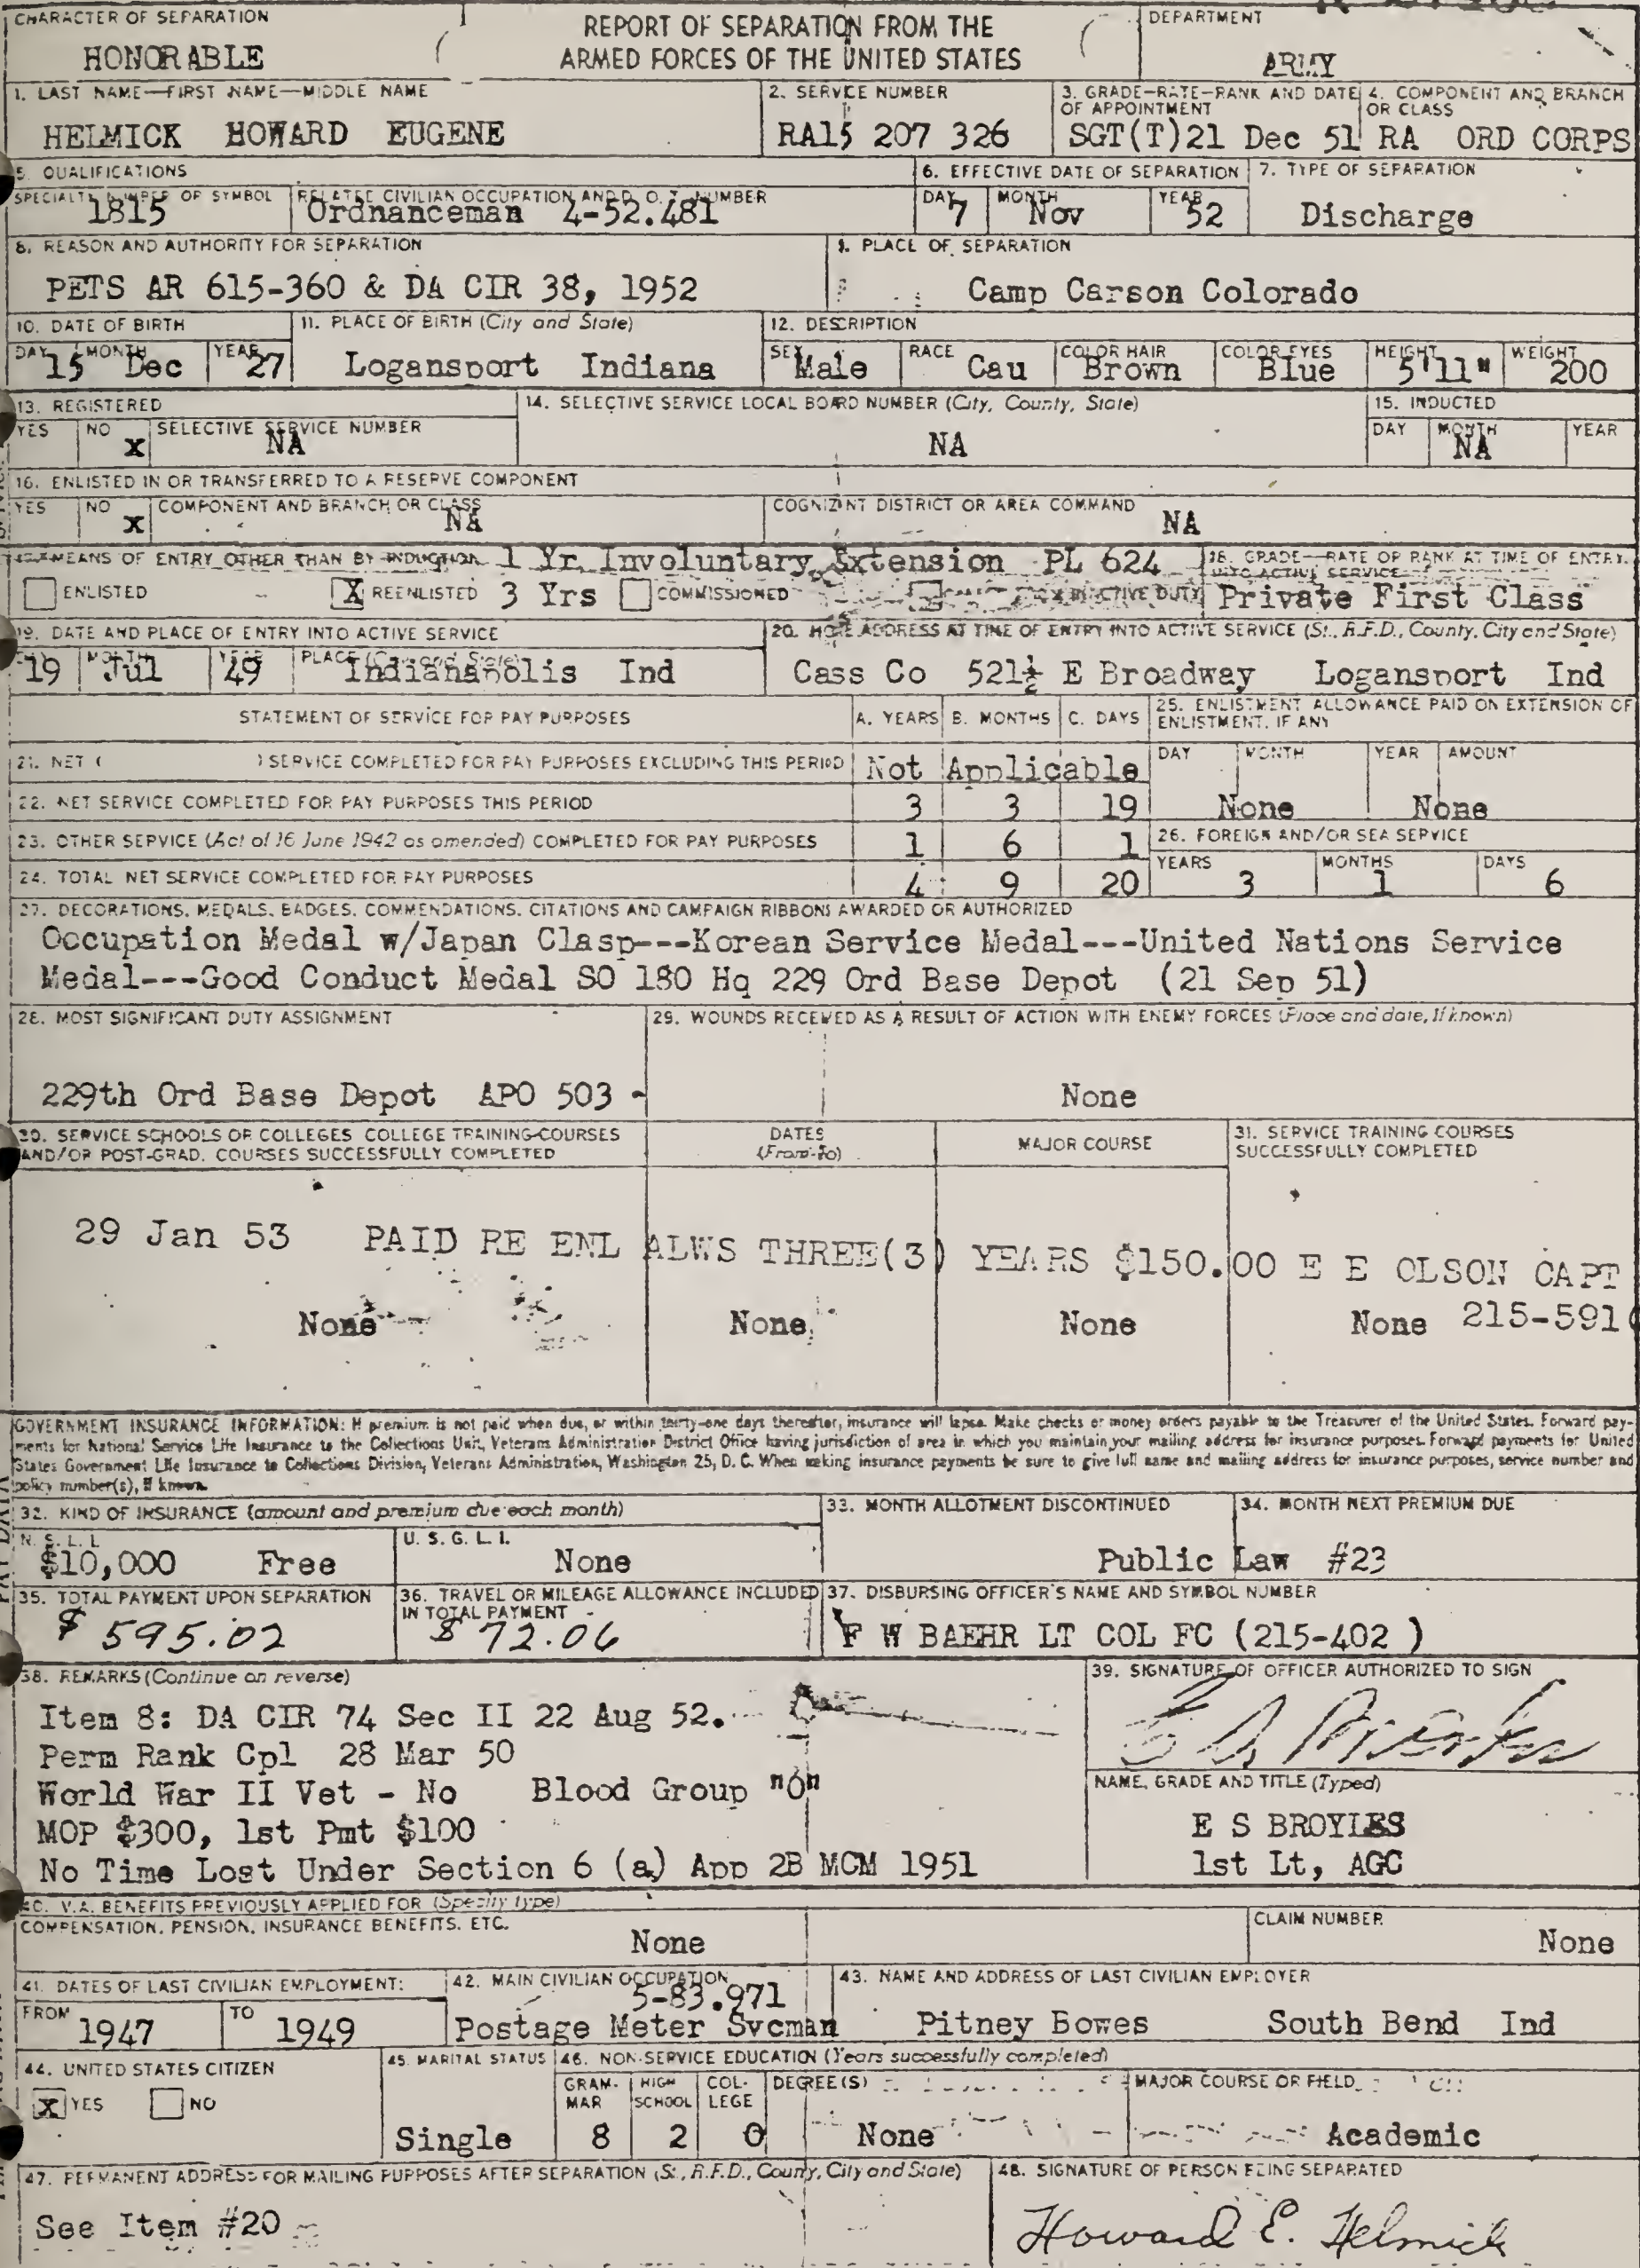 CHARACTER OF SEPARATION
HONORABLE
REPORT OF SEPARATION FROM THE
ARMED FORCES OF THE UNITED STATES
DEPARTMENT
ARMY
1. LAST NAME—FIRST NAME—MIDDLE NAME
HELMICK HOWARD EUGENE
2. SERVICE NUMBER
RA15 207 326
3. GRADE-RATE-RANK AND DATE OF APPOINTMENT
SGT(T)21 Dec 51
4. COMPONENT AND BRANCH OR CLASS
RA ORD CORPS
5. QUALIFICATIONS
SPECIALTY NUMBER OR SYMBOL
1815
RELATED CIVILIAN OCCUPATION AND D. O. T. NUMBER
Ordnanceman 4-52.481
6. EFFECTIVE DATE OF SEPARATION
DAY 7 MONTH Nov YEAR 52
7. TYPE OF SEPARATION
Discharge
8. REASON AND AUTHORITY FOR SEPARATION
PETS AR 615-360 & DA CIR 38, 1952
9. PLACE OF SEPARATION
Camp Carson Colorado
10. DATE OF BIRTH
DAY 15 MONTH Dec YEAR 27
11. PLACE OF BIRTH (City and State)
Logansport Indiana
12. DESCRIPTION
SEX Male RACE Cau COLOR HAIR Brown COLOR EYES Blue HEIGHT 5'11" WEIGHT 200
13. REGISTERED
YES NO x SELECTIVE SERVICE NUMBER NA
14. SELECTIVE SERVICE LOCAL BOARD NUMBER (City, County, State)
NA
15. INDUCTED
DAY MONTH YEAR
NA
16. ENLISTED IN OR TRANSFERRED TO A RESERVE COMPONENT
YES NO x COMPONENT AND BRANCH OR CLASS NA
COGNIZANT DISTRICT OR AREA COMMAND NA
MEANS OF ENTRY OTHER THAN BY INDUCTION 1 Yr Involuntary Extension PL 624
ENLISTED X REENLISTED 3 Yrs COMMISSIONED
18. GRADE—RATE OR RANK AT TIME OF ENTRY INTO ACTIVE SERVICE
Private First Class
19. DATE AND PLACE OF ENTRY INTO ACTIVE SERVICE
19 MONTH Jul YEAR 49 PLACE (City and State) Indianapolis Ind
20. HOME ADDRESS AT TIME OF ENTRY INTO ACTIVE SERVICE (St., R.F.D., County, City and State)
Cass Co 521½ E Broadway Logansport Ind
STATEMENT OF SERVICE FOR PAY PURPOSES A. YEARS B. MONTHS C. DAYS
21. NET ( ) SERVICE COMPLETED FOR PAY PURPOSES EXCLUDING THIS PERIOD Not Applicable
22. NET SERVICE COMPLETED FOR PAY PURPOSES THIS PERIOD 3 3 19
23. OTHER SERVICE (Act of 16 June 1942 as amended) COMPLETED FOR PAY PURPOSES 1 6 1
24. TOTAL NET SERVICE COMPLETED FOR PAY PURPOSES 4 9 20
25. ENLISTMENT ALLOWANCE PAID ON EXTENSION OF ENLISTMENT, IF ANY
DAY MONTH YEAR AMOUNT
None None
26. FOREIGN AND/OR SEA SERVICE
YEARS 3 MONTHS 1 DAYS 6
27. DECORATIONS, MEDALS, BADGES, COMMENDATIONS, CITATIONS AND CAMPAIGN RIBBONS AWARDED OR AUTHORIZED
Occupation Medal w/Japan Clasp---Korean Service Medal---United Nations Service
Medal---Good Conduct Medal SO 180 Hq 229 Ord Base Depot (21 Sep 51)
28. MOST SIGNIFICANT DUTY ASSIGNMENT
229th Ord Base Depot APO 503 -
29. WOUNDS RECEIVED AS A RESULT OF ACTION WITH ENEMY FORCES (Place and date, if known)
None
30. SERVICE SCHOOLS OR COLLEGES COLLEGE TRAINING COURSES
AND/OR POST-GRAD. COURSES SUCCESSFULLY COMPLETED
DATES
(From-To)
MAJOR COURSE
31. SERVICE TRAINING COURSES
SUCCESSFULLY COMPLETED
29 Jan 53 PAID RE ENL ALWS THREE(3) YEARS $150.00 E E OLSON CAPT
None None None None 215-591
GOVERNMENT INSURANCE INFORMATION: If premium is not paid when due, or within thirty-one days thereafter, insurance will lapse. Make checks or money orders payable to the Treasurer of the United States. Forward pay-
ments for National Service Life Insurance to the Collections Unit, Veterans Administration District Office having jurisdiction of area in which you maintain your mailing address for insurance purposes. Forward payments for United
States Government Life Insurance to Collections Division, Veterans Administration, Washington 25, D. C. When making insurance payments be sure to give full name and mailing address for insurance purposes, service number and
policy number(s), if known.
32. KIND OF INSURANCE (amount and premium due each month)
N. S. L. I.
$10,000 Free
U. S. G. L. I.
None
33. MONTH ALLOTMENT DISCONTINUED
34. MONTH NEXT PREMIUM DUE
Public Law #23
35. TOTAL PAYMENT UPON SEPARATION
$ 595.02
36. TRAVEL OR MILEAGE ALLOWANCE INCLUDED IN TOTAL PAYMENT
$ 72.06
37. DISBURSING OFFICER'S NAME AND SYMBOL NUMBER
F W BAEHR LT COL FC (215-402 )
38. REMARKS (Continue on reverse)
Item 8: DA CIR 74 Sec II 22 Aug 52.
Perm Rank Cpl 28 Mar 50
World War II Vet - No Blood Group "O"
MOP $300, 1st Pmt $100
No Time Lost Under Section 6 (a) App 2B MCM 1951
39. SIGNATURE OF OFFICER AUTHORIZED TO SIGN
NAME, GRADE AND TITLE (Typed)
E S BROYLES
1st Lt, AGC
40. V.A. BENEFITS PREVIOUSLY APPLIED FOR (Specify type)
COMPENSATION, PENSION, INSURANCE BENEFITS, ETC.
None
CLAIM NUMBER
None
41. DATES OF LAST CIVILIAN EMPLOYMENT:
FROM 1947 TO 1949
42. MAIN CIVILIAN OCCUPATION
5-83.971
Postage Meter Svcman
43. NAME AND ADDRESS OF LAST CIVILIAN EMPLOYER
Pitney Bowes South Bend Ind
44. UNITED STATES CITIZEN
X YES NO
45. MARITAL STATUS
Single
46. NON-SERVICE EDUCATION (Years successfully completed)
GRAM-MAR 8 HIGH SCHOOL 2 COL-LEGE 0 DEGREE(S) None MAJOR COURSE OR FIELD Academic
47. PERMANENT ADDRESS FOR MAILING PURPOSES AFTER SEPARATION (St., R.F.D., County, City and State)
See Item #20
48. SIGNATURE OF PERSON BEING SEPARATED
Howard E. Helmick